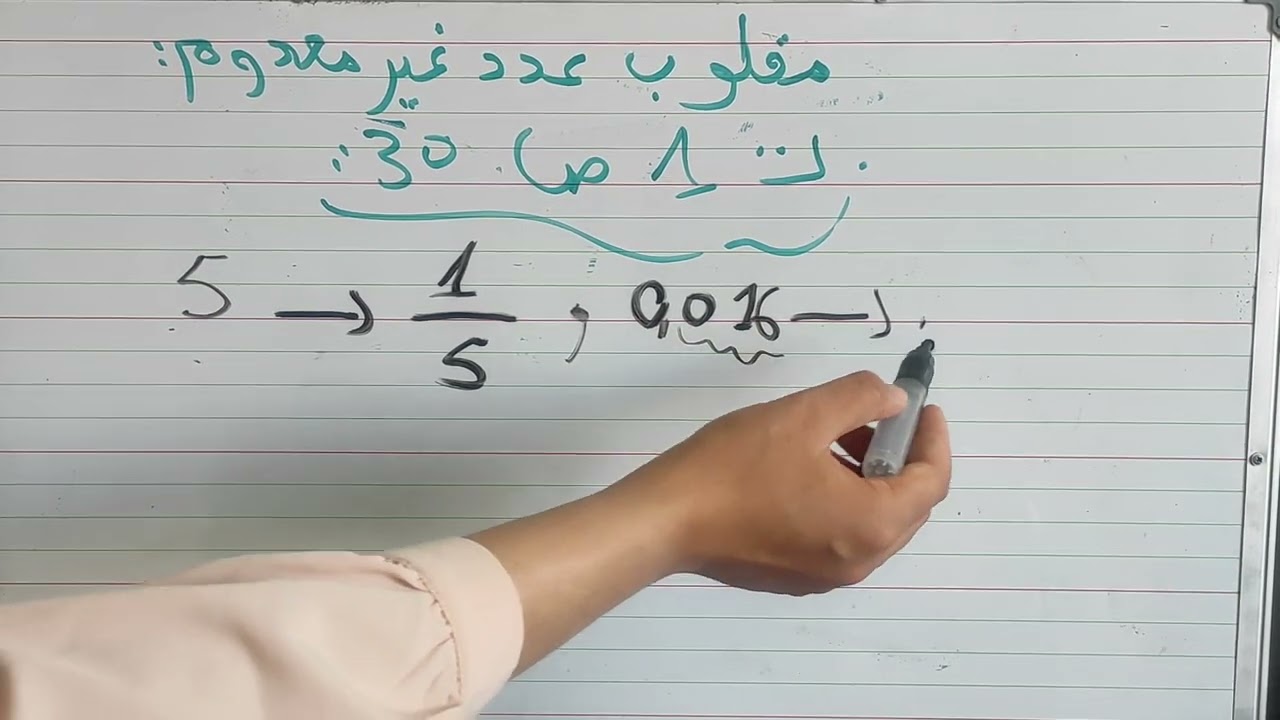 مقلوب عدد غير معدوم:
ت 1 ص 30:
5 → 1/5 ; 0,016 →